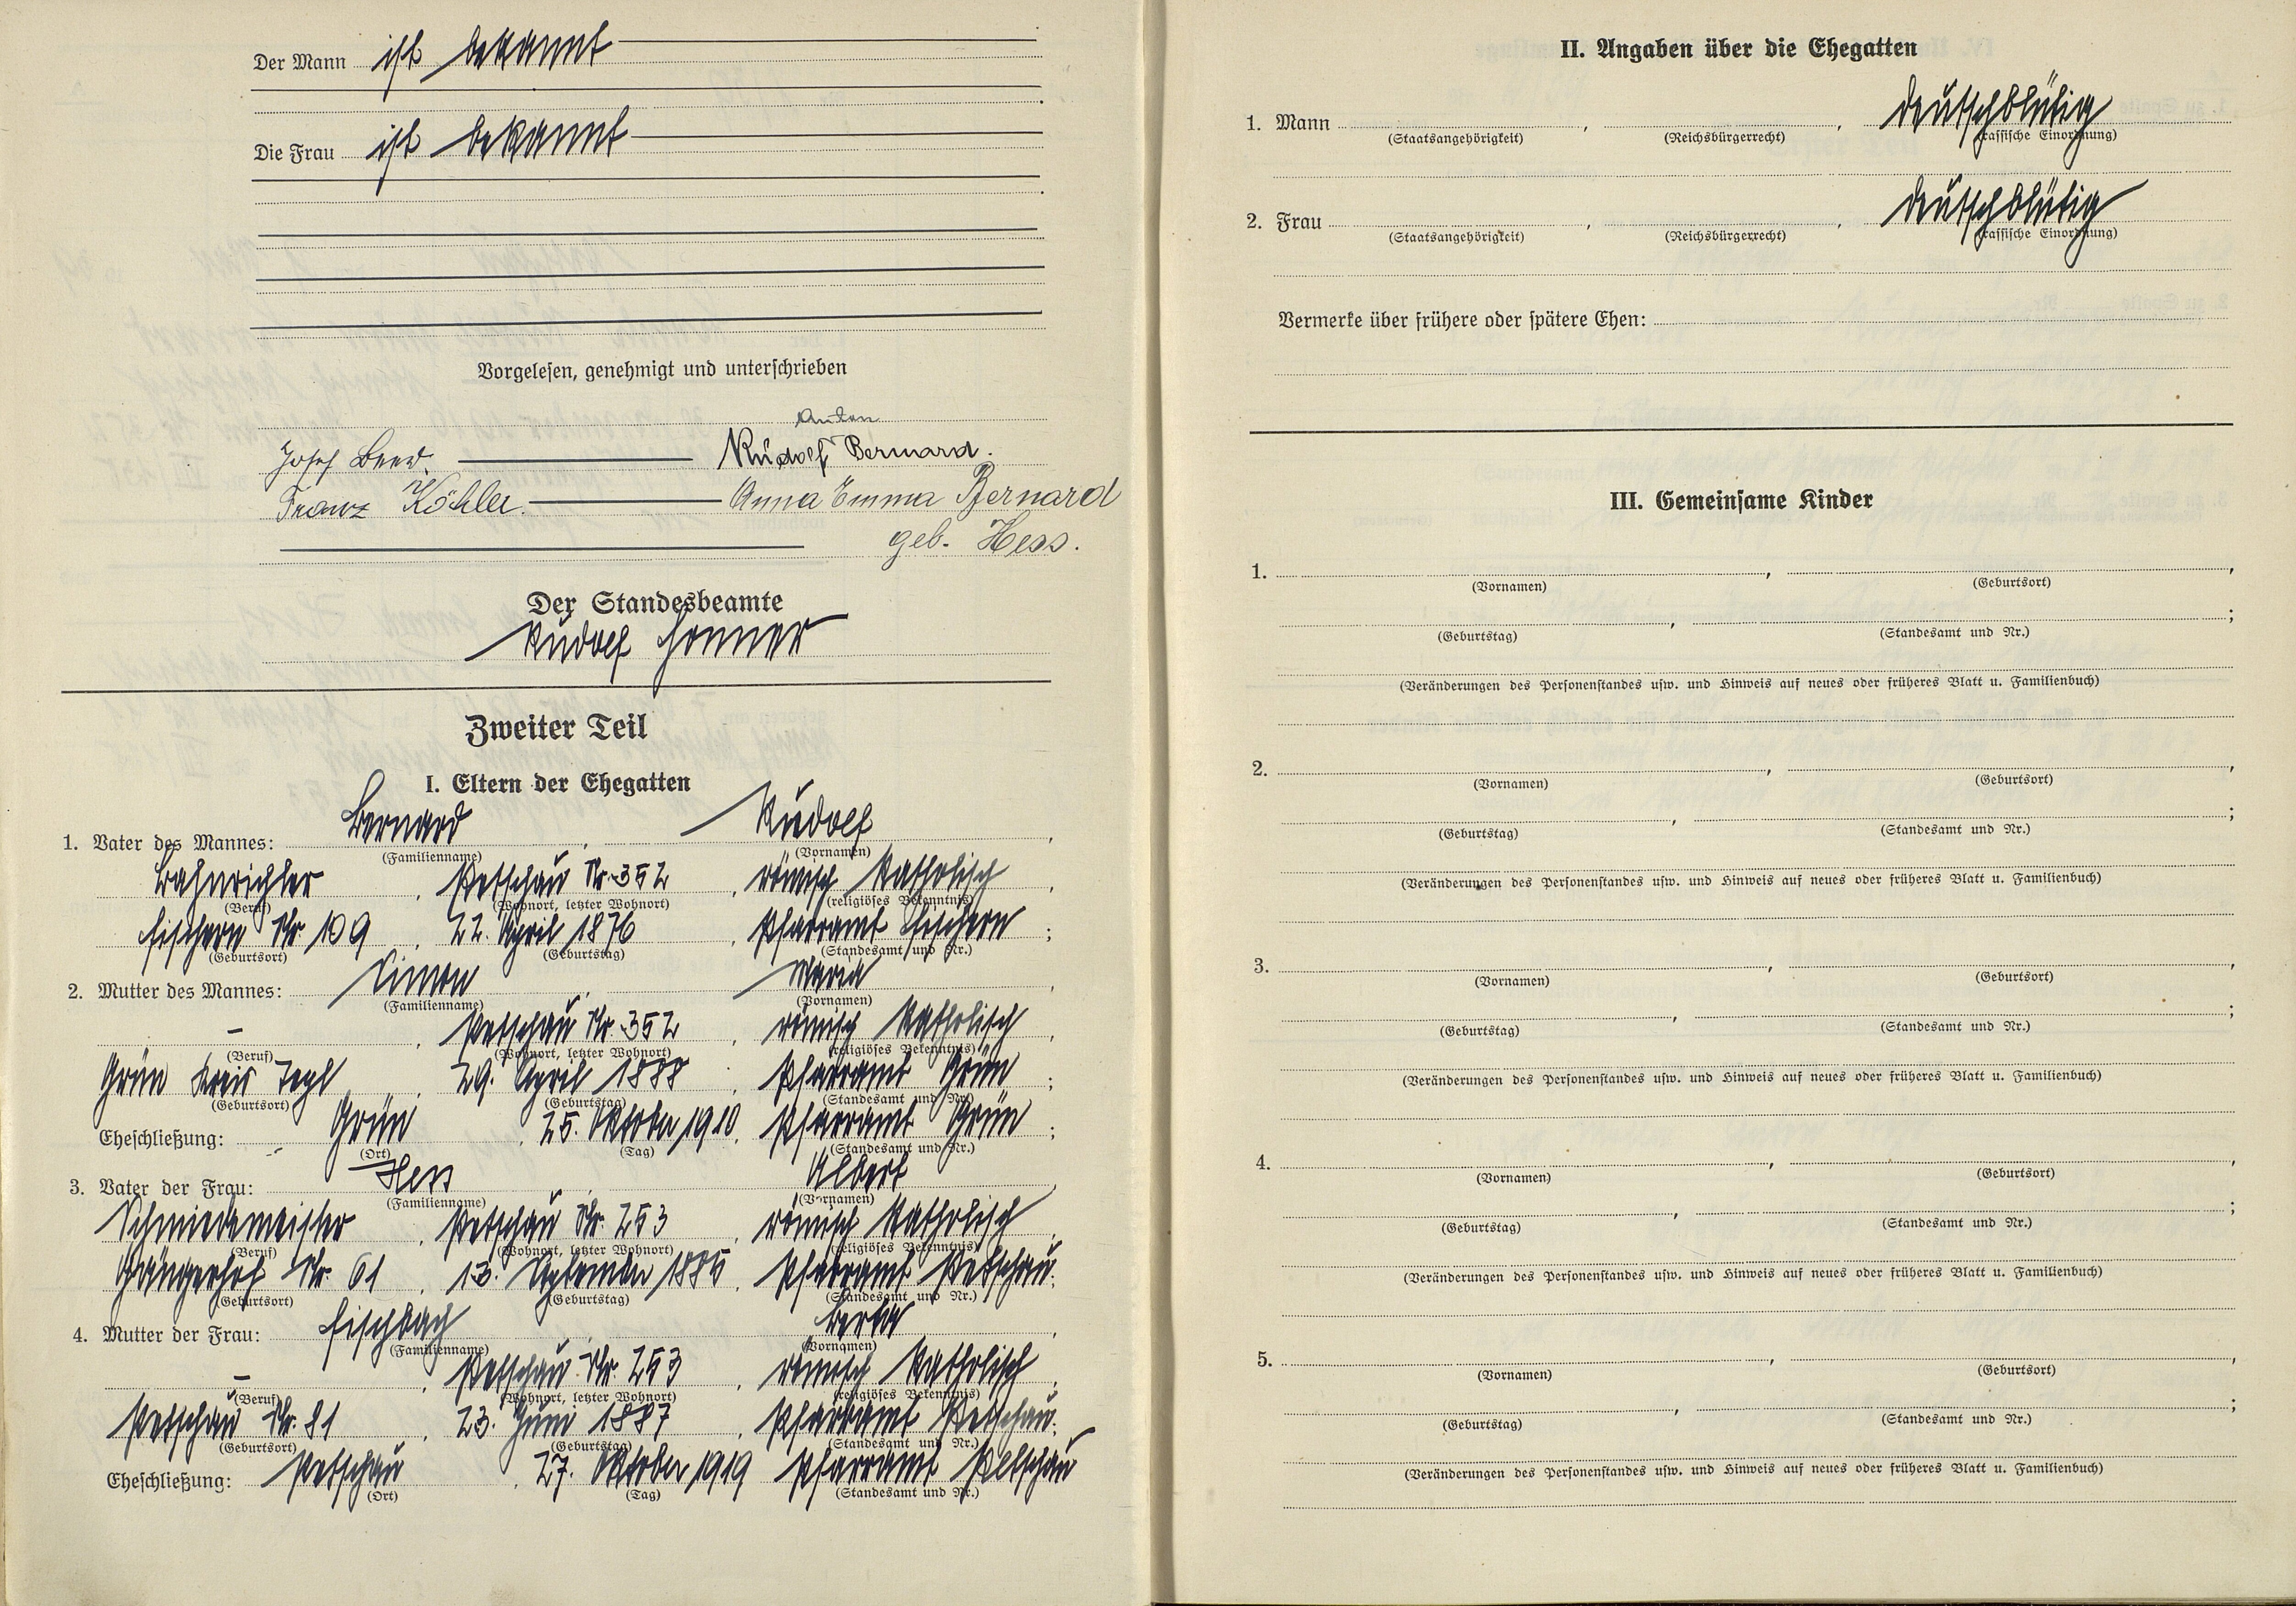 Der Mann ist bekannt
Die Frau ist bekannt
Vorgelesen, genehmigt und unterschrieben
Anton
Josef Rudolf Bernard.
Franz Köhler. Anna Emma Bernard
geb. Hess.
Der Standesbeamte
Rudolf
Zweiter Teil
I. Eltern der Ehegatten
1. Vater des Mannes: Bernard, Rudolf,
(Familienname) (Vornamen)
Bahnrichter, Petschau Nr. 352, römisch katholisch,
(Beruf) (Wohnort, letzter Wohnort) (religiöses Bekenntnis)
Fischern Nr. 109, 22. April 1876, Pfarramt Fischern;
(Geburtsort) (Geburtstag) (Standesamt und Nr.)
2. Mutter des Mannes: Simon, Maria,
(Familienname) (Vornamen)
–, Petschau Nr. 352, römisch katholisch,
(Beruf) (Wohnort, letzter Wohnort) (religiöses Bekenntnis)
Grün Kreis Tepl, 29. April 1888, Pfarramt Grün;
(Geburtsort) (Geburtstag) (Standesamt und Nr.)
Eheschließung: Grün, 25. Oktober 1910, Pfarramt Grün;
(Ort) (Tag) (Standesamt und Nr.)
3. Vater der Frau: Hess, Albert,
(Familienname) (Vornamen)
Schmiedemeister, Petschau Nr. 253, römisch katholisch,
(Beruf) (Wohnort, letzter Wohnort) (religiöses Bekenntnis)
Gängerhof Nr. 61, 13. September 1885, Pfarramt Petschau;
(Geburtsort) (Geburtstag) (Standesamt und Nr.)
4. Mutter der Frau: Fischbach, Berta,
(Familienname) (Vornamen)
–, Petschau Nr. 253, römisch katholisch,
(Beruf) (Wohnort, letzter Wohnort) (religiöses Bekenntnis)
Petschau Nr. 81, 23. Juni 1887, Pfarramt Petschau;
(Geburtsort) (Geburtstag) (Standesamt und Nr.)
Eheschließung: Petschau, 27. Oktober 1919 Pfarramt Petschau
(Ort) (Tag) (Standesamt und Nr.)
II. Angaben über die Ehegatten
1. Mann , , deutschblütig
(Staatsangehörigkeit) (Reichsbürgerrecht) (rassische Einordnung)
2. Frau , , deutschblütig
(Staatsangehörigkeit) (Reichsbürgerrecht) (rassische Einordnung)
Vermerke über frühere oder spätere Ehen:
III. Gemeinsame Kinder
1. , ,
(Vornamen) (Geburtsort)
, ;
(Geburtstag) (Standesamt und Nr.)
(Veränderungen des Personenstandes usw. und Hinweis auf neues oder früheres Blatt u. Familienbuch)
2. , ,
(Vornamen) (Geburtsort)
, ;
(Geburtstag) (Standesamt und Nr.)
(Veränderungen des Personenstandes usw. und Hinweis auf neues oder früheres Blatt u. Familienbuch)
3. , ,
(Vornamen) (Geburtsort)
, ;
(Geburtstag) (Standesamt und Nr.)
(Veränderungen des Personenstandes usw. und Hinweis auf neues oder früheres Blatt u. Familienbuch)
4. , ,
(Vornamen) (Geburtsort)
, ;
(Geburtstag) (Standesamt und Nr.)
(Veränderungen des Personenstandes usw. und Hinweis auf neues oder früheres Blatt u. Familienbuch)
5. , ,
(Vornamen) (Geburtsort)
, ;
(Geburtstag) (Standesamt und Nr.)
(Veränderungen des Personenstandes usw. und Hinweis auf neues oder früheres Blatt u. Familienbuch)